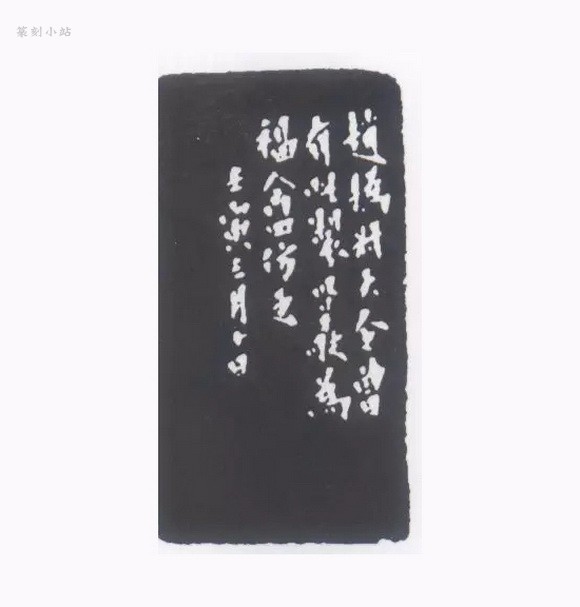 篆刻小站
趙撝叔大令曾
有此製為
福盦仿之
壬寅三月十日